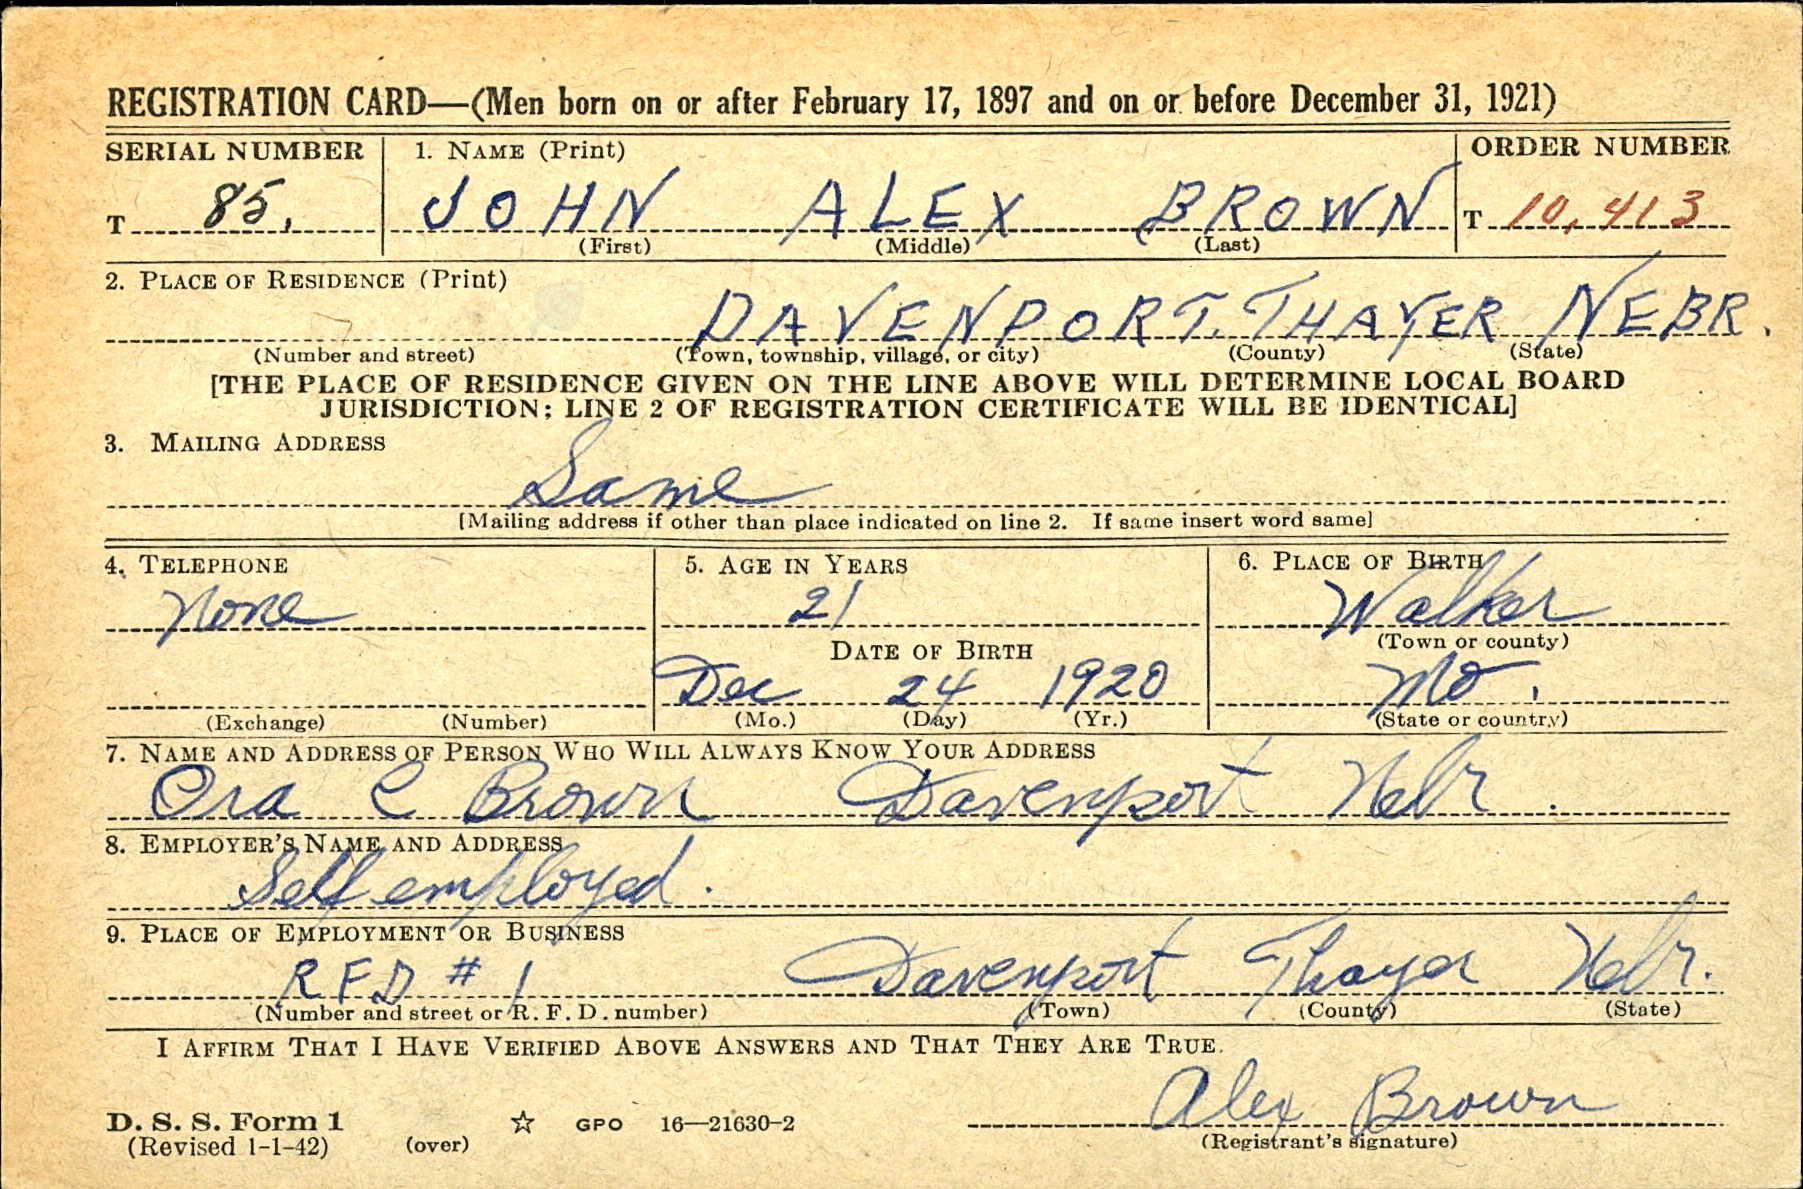 REGISTRATION CARD—(Men born on or after February 17, 1897 and on or before December 31, 1921)
SERIAL NUMBER 1. NAME (Print) ORDER NUMBER
T 85. JOHN ALEX BROWN T 10,413
(First) (Middle) (Last)
2. PLACE OF RESIDENCE (Print)
DAVENPORT. THAYER NEBR.
(Number and street) (Town, township, village, or city) (County) (State)
[THE PLACE OF RESIDENCE GIVEN ON THE LINE ABOVE WILL DETERMINE LOCAL BOARD
JURISDICTION; LINE 2 OF REGISTRATION CERTIFICATE WILL BE IDENTICAL]
3. MAILING ADDRESS
Same
[Mailing address if other than place indicated on line 2. If same insert word same]
4. TELEPHONE 5. AGE IN YEARS 6. PLACE OF BIRTH
None 21 Walker
DATE OF BIRTH (Town or county)
Dec 24 1920 Mo.
(Exchange) (Number) (Mo.) (Day) (Yr.) (State or country)
7. NAME AND ADDRESS OF PERSON WHO WILL ALWAYS KNOW YOUR ADDRESS
Ora C Brown Davenport Nebr.
8. EMPLOYER'S NAME AND ADDRESS
Self employed.
9. PLACE OF EMPLOYMENT OR BUSINESS
RFD # 1 Davenport Thayer Nebr.
(Number and street or R. F. D. number) (Town) (County) (State)
I AFFIRM THAT I HAVE VERIFIED ABOVE ANSWERS AND THAT THEY ARE TRUE.
Alex Brown
D. S. S. Form 1 ☆ GPO 16—21630-2
(Revised 1-1-42) (over) (Registrant's signature)